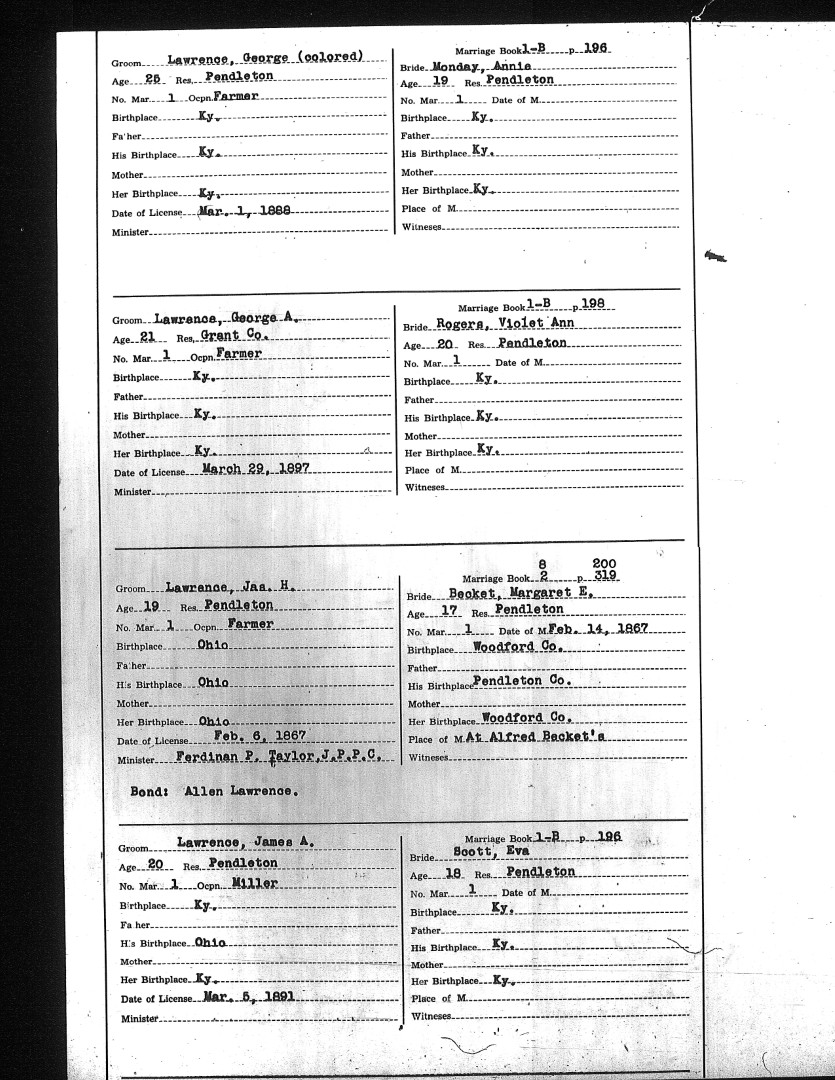 Groom Lawrence, George (colored)
Age 25 Res. Pendleton
No. Mar. 1 Ocpn. Farmer
Birthplace Ky.
Father
His Birthplace Ky.
Mother
Her Birthplace Ky.
Date of License Mar. 1, 1888
Minister
Marriage Book 1-B p. 196
Bride Monday, Annie
Age 19 Res. Pendleton
No. Mar. 1 Date of M.
Birthplace Ky.
Father
His Birthplace Ky.
Mother
Her Birthplace Ky.
Place of M.
Witneses
Groom Lawrence, George A.
Age 21 Res. Grant Co.
No. Mar. 1 Ocpn. Farmer
Birthplace Ky.
Father
His Birthplace Ky.
Mother
Her Birthplace Ky.
Date of License March 29, 1897
Minister
Marriage Book 1-B p. 198
Bride Rogers, Violet Ann
Age 20 Res. Pendleton
No. Mar. 1 Date of M.
Birthplace Ky.
Father
His Birthplace Ky.
Mother
Her Birthplace Ky.
Place of M.
Witneses
Groom Lawrence, Jas. H.
Age 19 Res. Pendleton
No. Mar. 1 Ocpn. Farmer
Birthplace Ohio
Father
His Birthplace Ohio
Mother
Her Birthplace Ohio
Date of License Feb. 6, 1867
Minister Ferdinan P. Taylor, J.P.P.C.
Bond: Allen Lawrence.
8 200
Marriage Book 2 p. 319
Bride Becket, Margaret E.
Age 17 Res. Pendleton
No. Mar. 1 Date of M. Feb. 14, 1867
Birthplace Woodford Co.
Father
His Birthplace Pendleton Co.
Mother
Her Birthplace Woodford Co.
Place of M. At Alfred Becket's
Witneses
Groom Lawrence, James A.
Age 20 Res. Pendleton
No. Mar. 1 Ocpn. Miller
Birthplace Ky.
Father
His Birthplace Ohio
Mother
Her Birthplace Ky.
Date of License Mar. 5, 1891
Minister
Marriage Book 1-B p. 196
Bride Scott, Eva
Age 18 Res. Pendleton
No. Mar. 1 Date of M.
Birthplace Ky.
Father
His Birthplace Ky.
Mother
Her Birthplace Ky.
Place of M.
Witneses